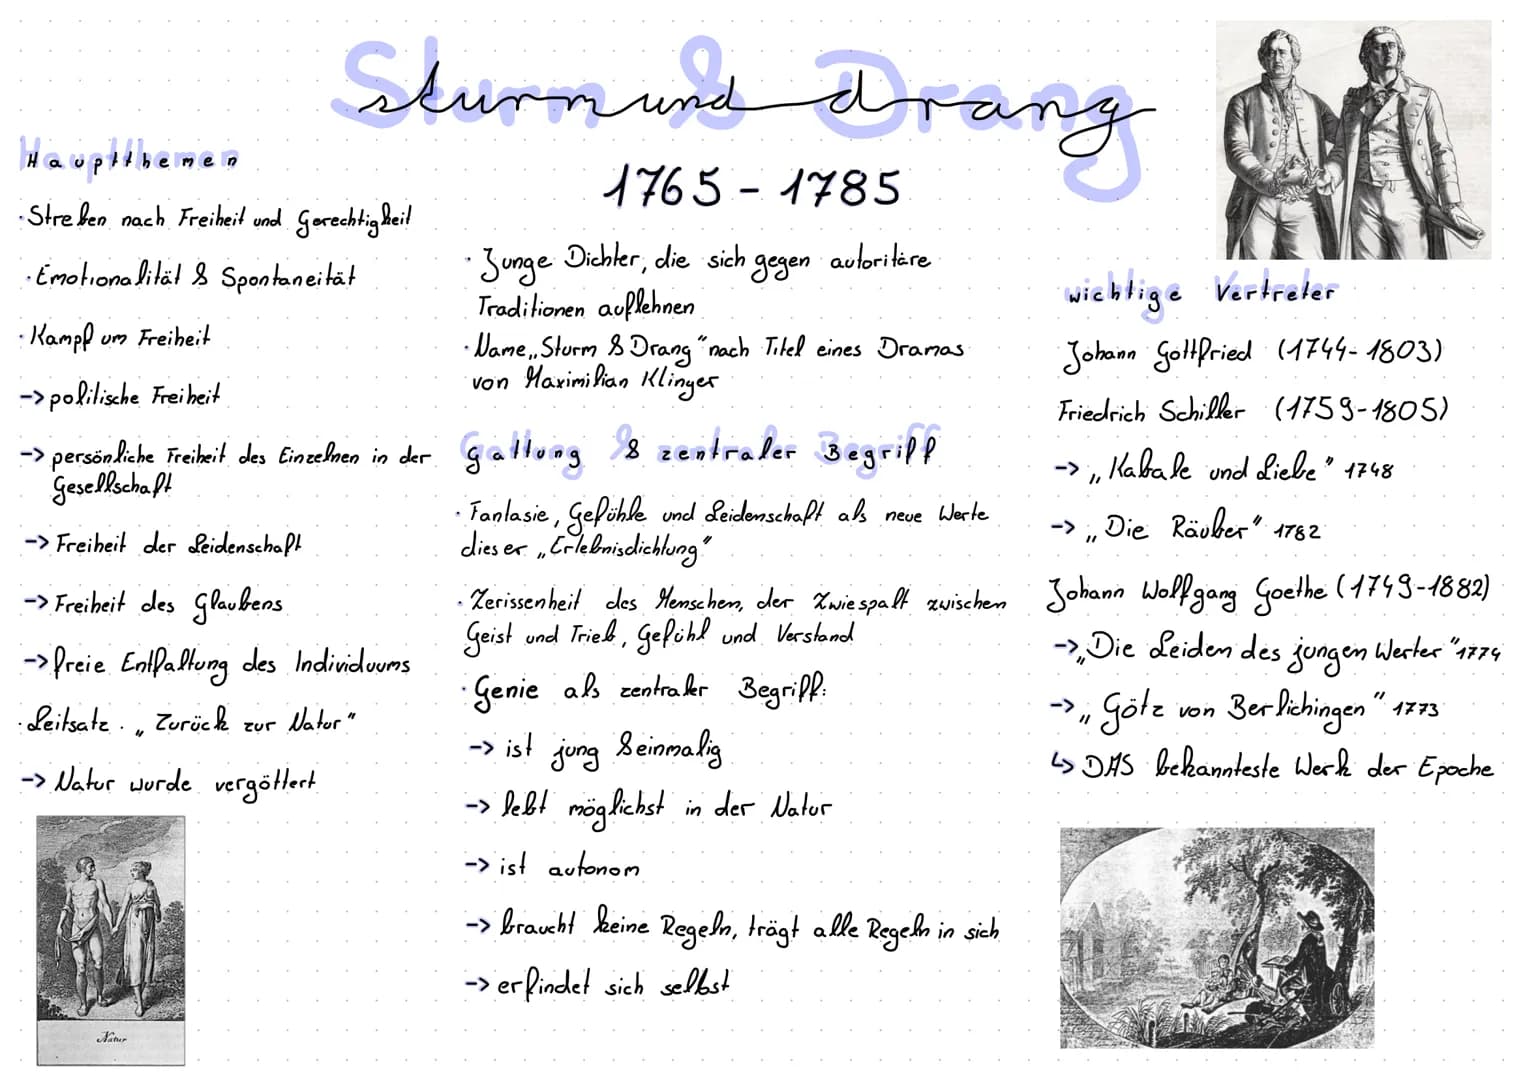 Sturm & Drang
sturm und drang
1765 - 1785
Hauptthemen
· Streben nach Freiheit und Gerechtigkeit
· Emotionalität & Spontaneität
· Kampf um Freiheit
-> politische Freiheit
-> persönliche Freiheit des Einzelnen in der
Gesellschaft
-> Freiheit der Leidenschaft
-> Freiheit des Glaubens
-> freie Entfaltung des Individuums
· Leitsatz: „Zurück zur Natur"
-> Natur wurde vergöttert
Natur
· Junge Dichter, die sich gegen autoritäre
Traditionen auflehnen
· Name „Sturm & Drang" nach Titel eines Dramas
von Maximilian Klinger
Gattung & zentraler Begriff
· Fantasie, Gefühle und Leidenschaft als neue Werte
dieser „Erlebnisdichtung"
· Zerissenheit des Menschen, der Zwiespalt zwischen
Geist und Trieb, Gefühl und Verstand
· Genie als zentraler Begriff:
-> ist jung & einmalig
-> lebt möglichst in der Natur
-> ist autonom
-> braucht keine Regeln, trägt alle Regeln in sich
-> erfindet sich selbst
wichtige Vertreter
Johann Gottfried (1744-1803)
Friedrich Schiller (1759-1805)
-> „Kabale und Liebe" 1748
-> „Die Räuber" 1782
Johann Wolfgang Goethe (1749-1882)
-> „Die Leiden des jungen Werter" 1774
-> „Götz von Berlichingen" 1773
↳ DAS bekannteste Werk der Epoche